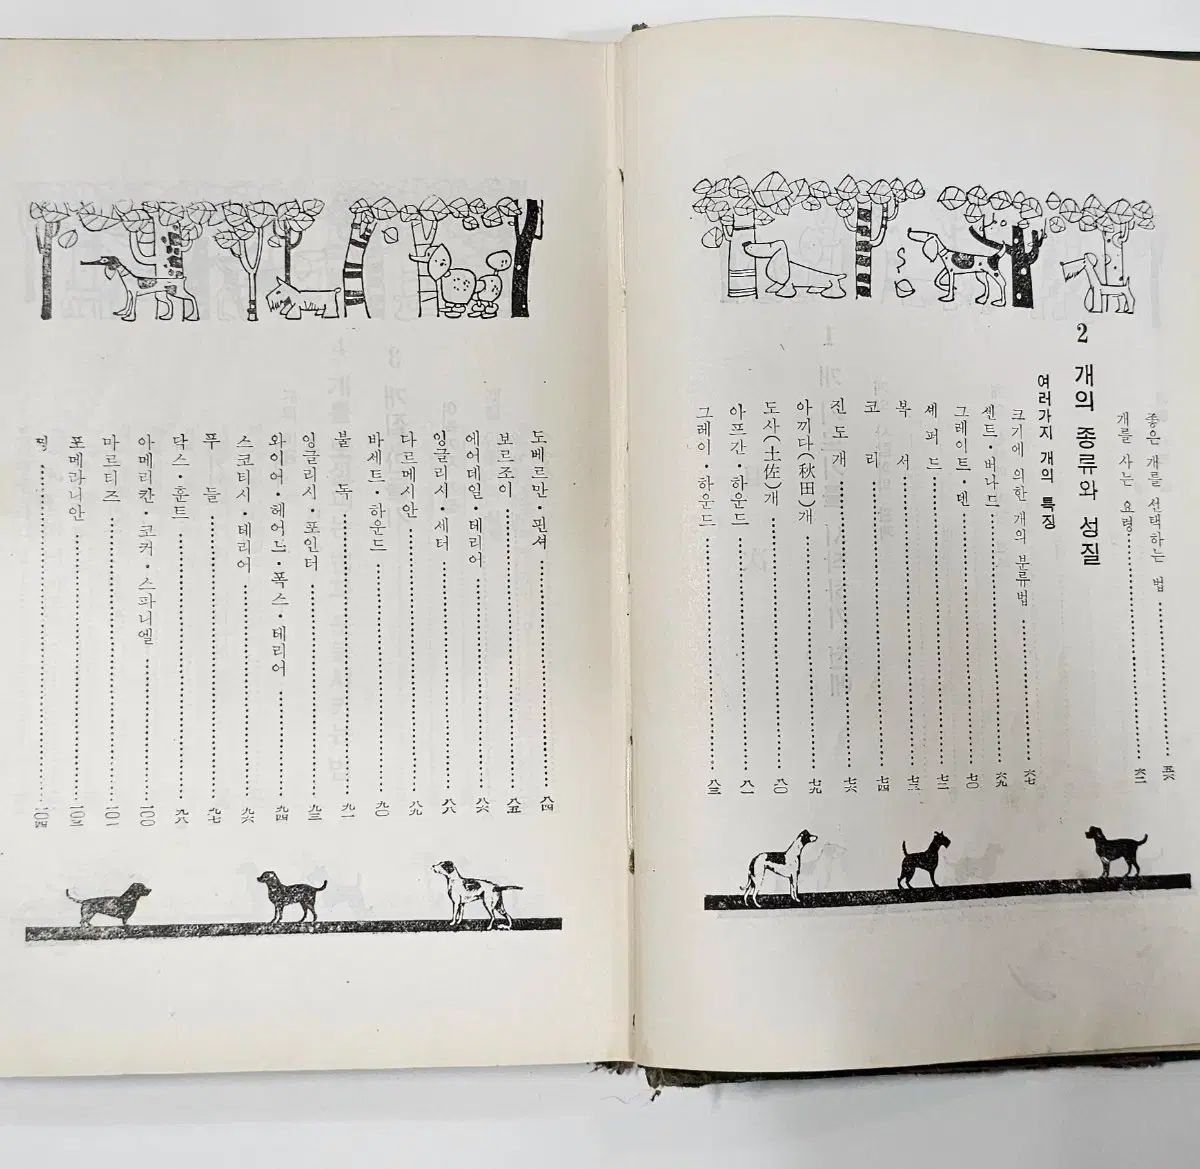 좋은 개를 선택하는 법 …… 五六
개를 사는 요령 …… 六二
2 개의 종류와 성질
여러가지 개의 특징
크기에 의한 개의 분류법 …… 六七
센트・버나드 …… 六九
그레이트・덴 …… 七〇
셰 퍼 드 …… 七二
서 …… 七三
코 리 …… 七四
진 도 개 …… 七六
아끼다(秋田)개 …… 七九
도사(土佐)개 …… 八〇
아프간・하운드 …… 八一
그레이・하운드 …… 八三
도베르만・핀셔 …… 八四
보르조이 …… 八五
에어데일・테리어 …… 八六
잉글리시・세터 …… 八八
다르메시안 …… 八九
바세트・하운드 …… 九〇
불 독 …… 九一
잉글리시・포인터 …… 九三
와이어・헤어드・폭스・테리어 …… 九四
스코티시・테리어 …… 九六
푸 들 …… 九七
닥스・훈트 …… 九八
아메리칸・코커・스파니엘 …… 一〇〇
마르티즈 …… 一〇一
포메라니안 …… 一〇三
…… 一〇四